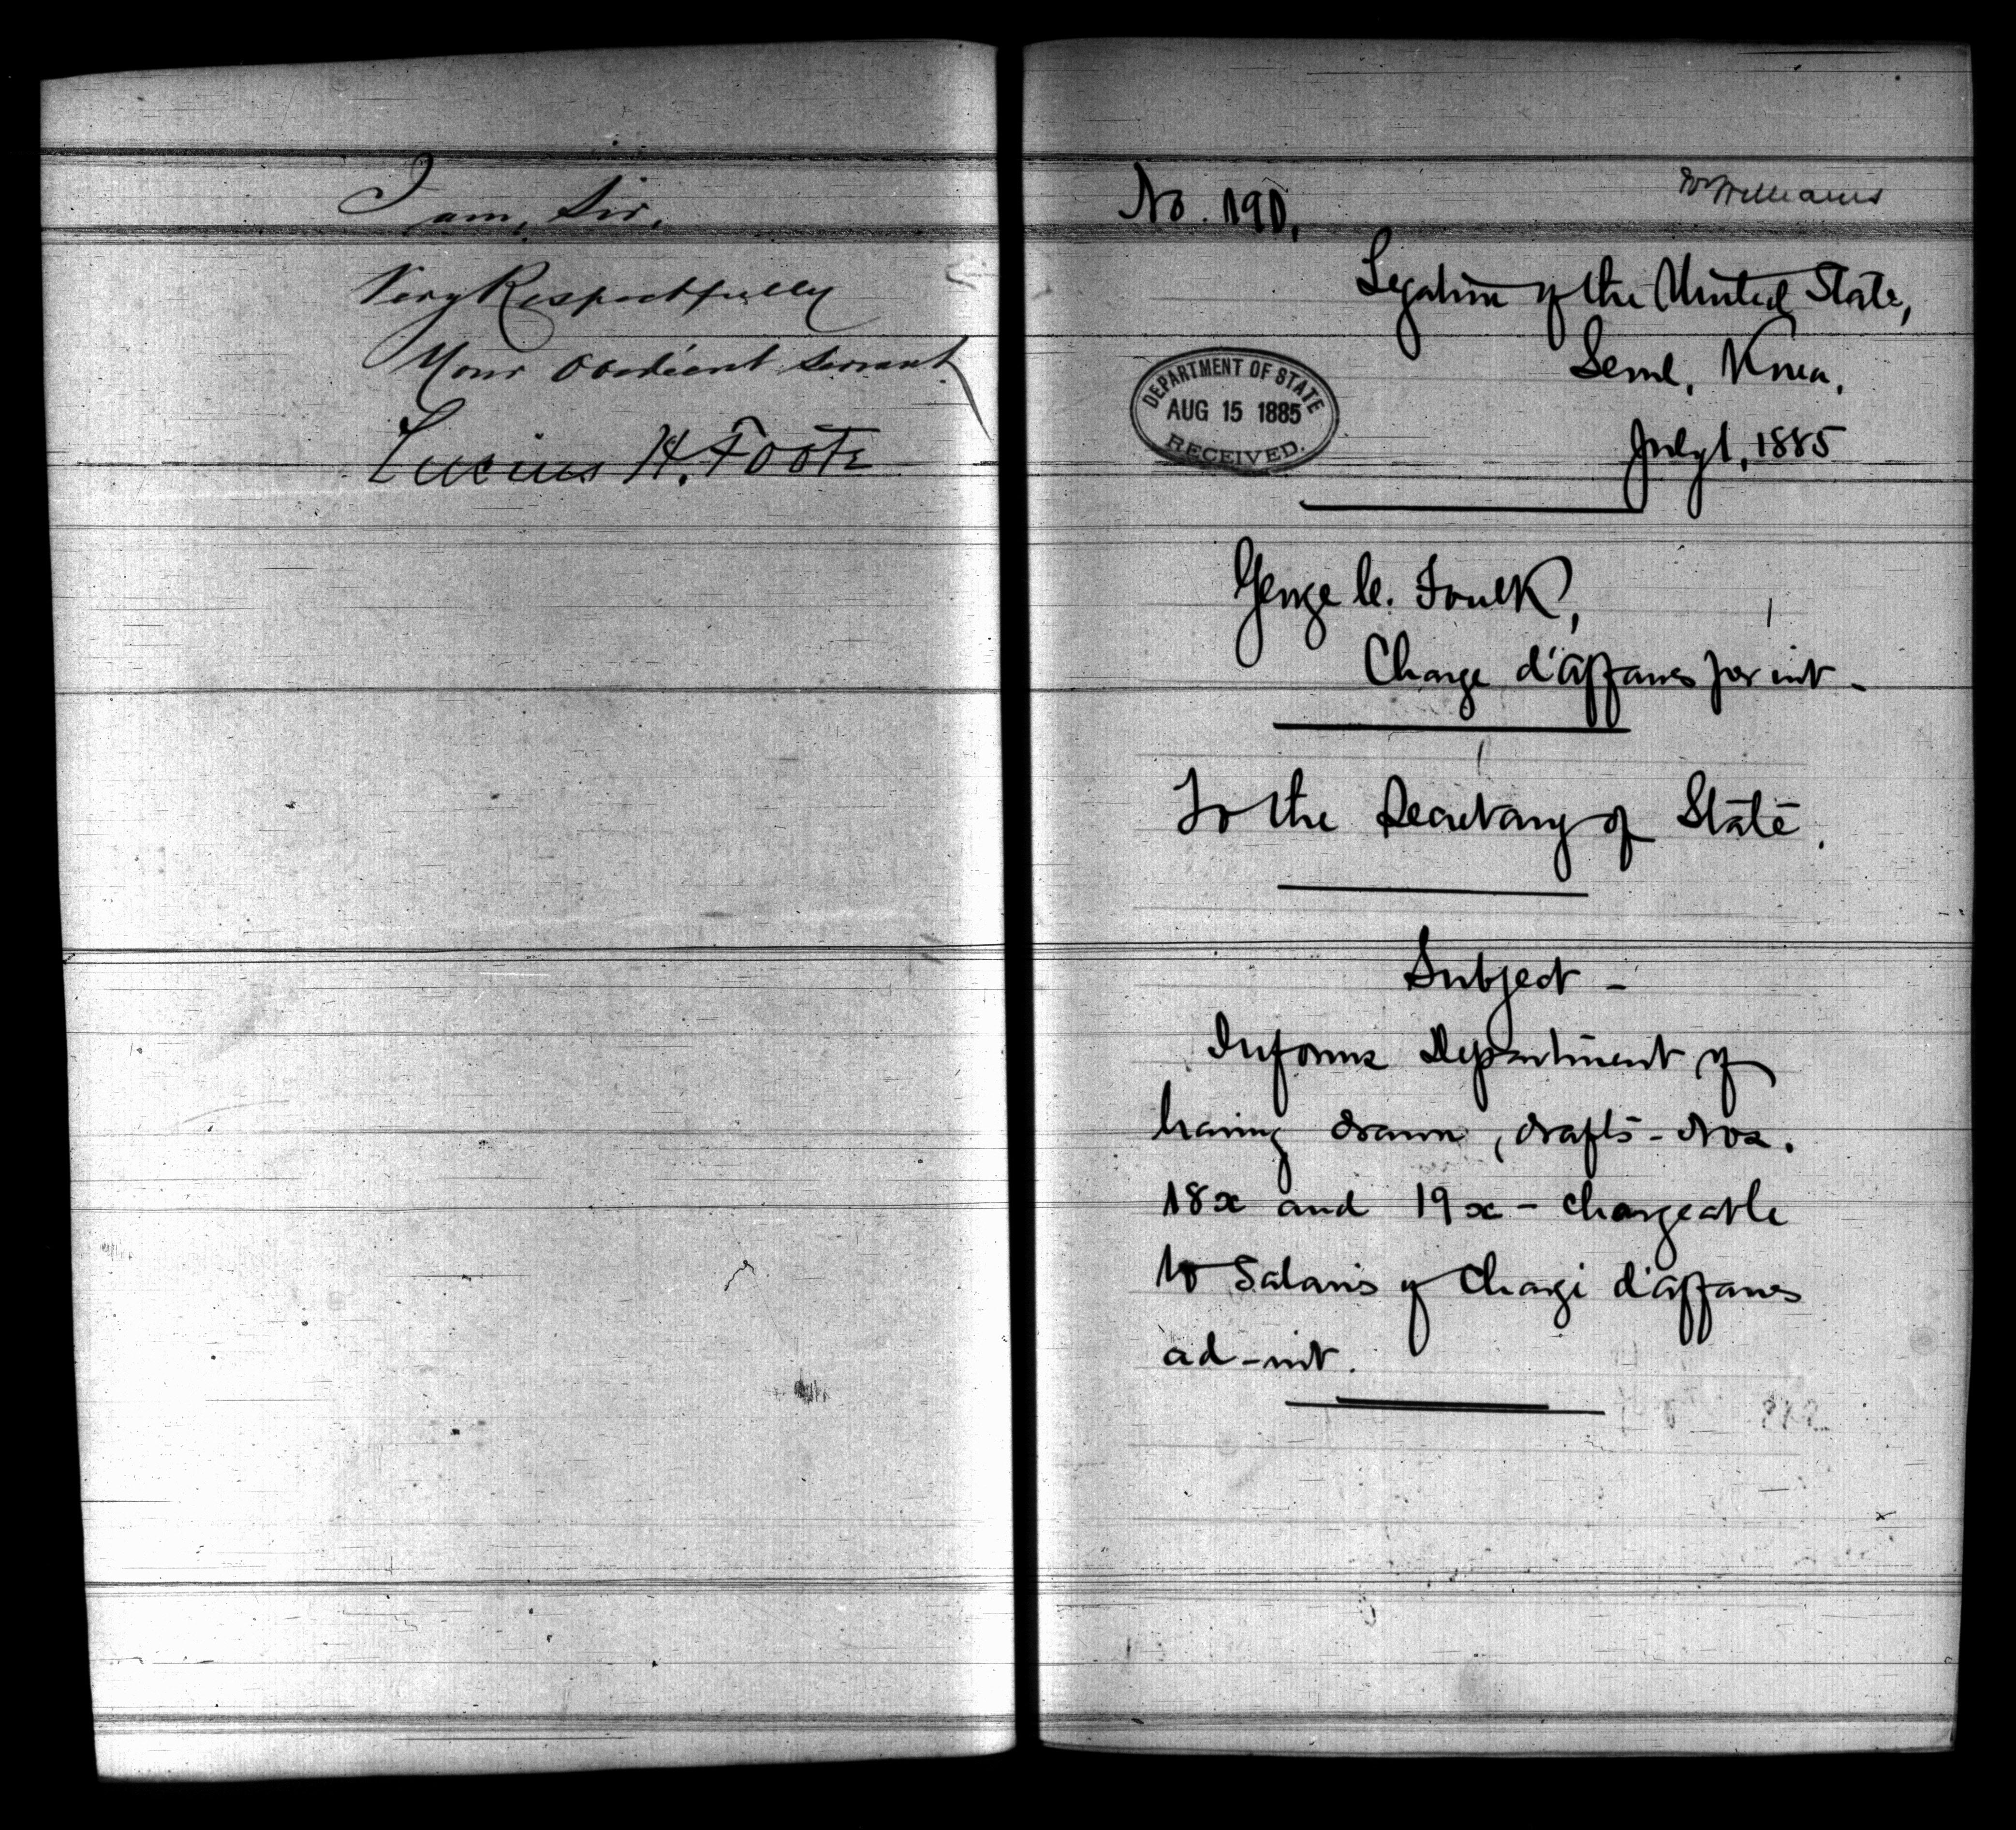 I am, Sir,
Very Respectfully
Your Obedient Servant
Lucius H. Foote
No. 190,
Mr Williams
Legation of the United States,
Seoul, Korea,
July 1, 1885
DEPARTMENT OF STATE
AUG 15 1885
RECEIVED.
George C. Foulk,
Charge d'affaires ad int -
To the Secretary of State.
Subject -
Informs Department of
having drawn, drafts - Nos.
18x and 19x - chargeable
to Salaries of Chargé d'affaires
ad-int.